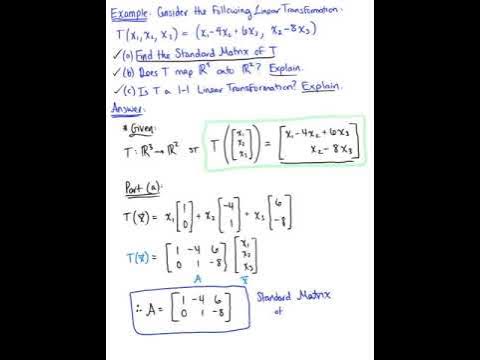 Example: Consider the Following Linear Transformation.
T(x₁, x₂, x₃) = (x₁-4x₂+6x₃, x₂-8x₃)
✓(a) Find the Standard Matrix of T
✓(b) Does T map ℝ³ onto ℝ²? Explain.
✓(c) Is T a 1-1 Linear Transformation? Explain.
Answer:
* Given:
T: ℝ³→ℝ² st T([x₁ x₂ x₃]) = [x₁-4x₂+6x₃ x₂-8x₃]
Part (a):
T(x̄) = x₁[1 0] + x₂[-4 1] + x₃[6 -8]
T(x̄) = [1 -4 6 0 1 -8][x₁ x₂ x₃]
A x̄
∴ A = [1 -4 6 0 1 -8] Standard Matrix
of